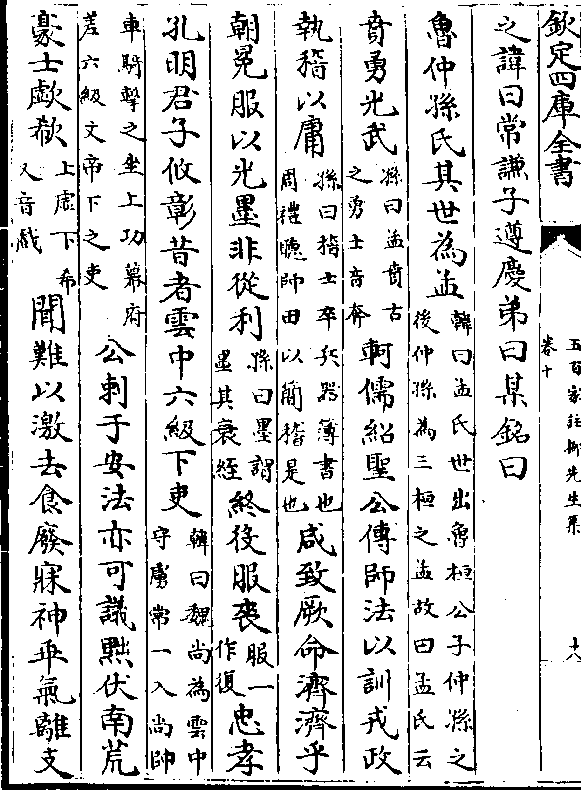 欽定四庫全書
五百家註柳先生集
卷十
十八
之諱曰常謙子遵慶弟曰某銘曰
魯仲孫氏其世為孟
韓曰孟氏世出魯桓公子仲孫之
後仲孫為三桓之孟故曰孟氏云
賁勇光武
孫曰孟賁古
之勇士音奔
軻儒紹聖公傳師法以訓戎政
執稽以庸
孫曰稽士卒兵器簿書也
周禮聽師田以簡稽是也
咸致厥命濟濟乎
朝冕服以光墨非從利
孫曰墨謂
墨其衰絰
終後服喪
服一
作復
忠孝
孔明君子攸彰昔者雲中六級下吏
韓曰魏尚為雲中
守虜常一入尚帥
車騎擊之坐上功幕府
差六級文帝下之吏
公刺于安法亦可議黜伏南荒
豪士歔欷
上虚下希
又音戲
聞難以激去食廢寐神乖氣離支